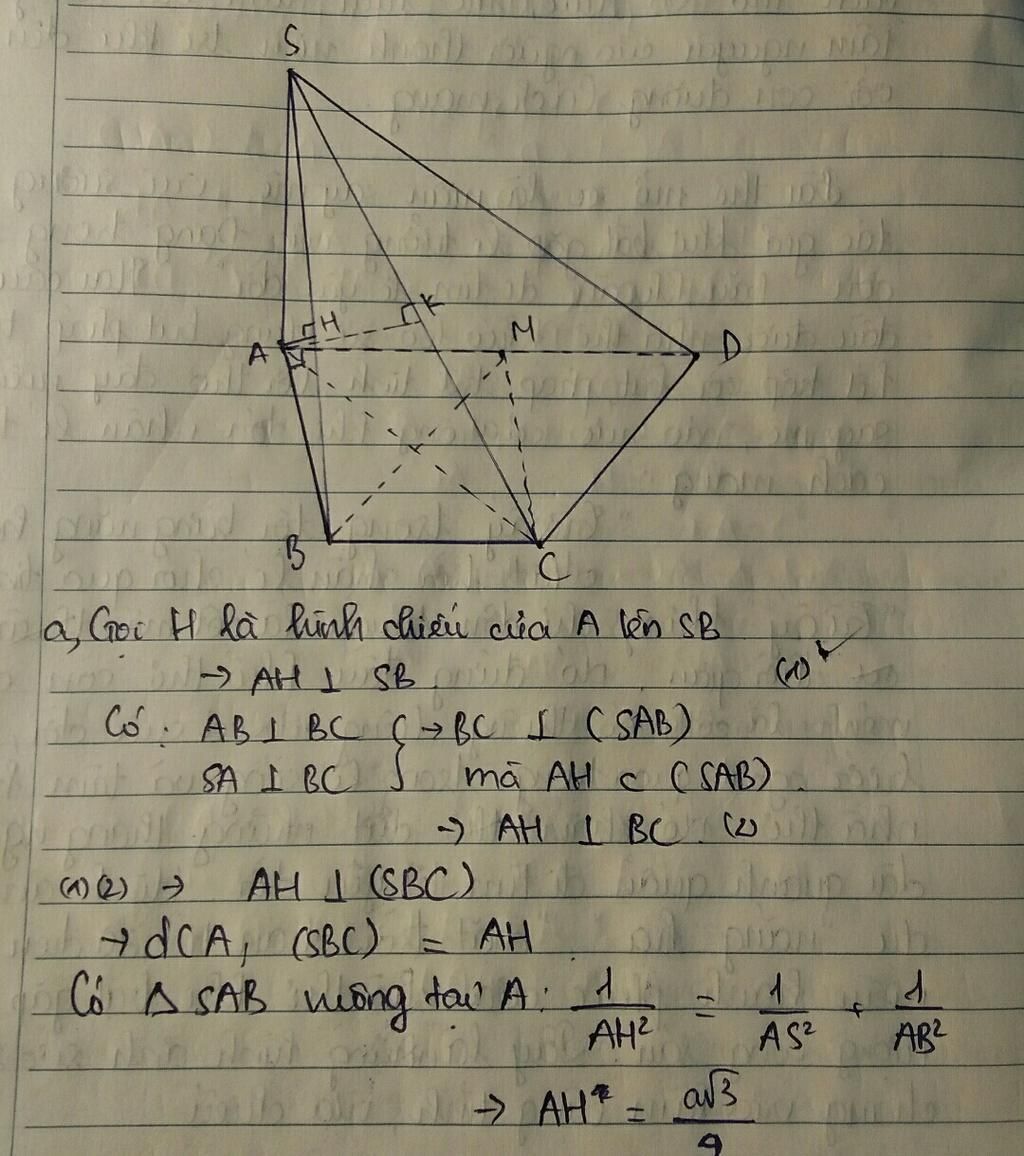 S
H
K
A
M
D
B
C
a, Gọi H là hình chiếu của A lên SB
→ AH ⊥ SB (1)
Có: AB ⊥ BC } → BC ⊥ (SAB)
SA ⊥ BC } mà AH ⊂ (SAB).
→ AH ⊥ BC. (2)
(1)(2) → AH ⊥ (SBC)
→ d(A, (SBC) = AH
Có Δ SAB vuông tại A: 1/AH² = 1/AS² + 1/AB²
→ AH = a√3/